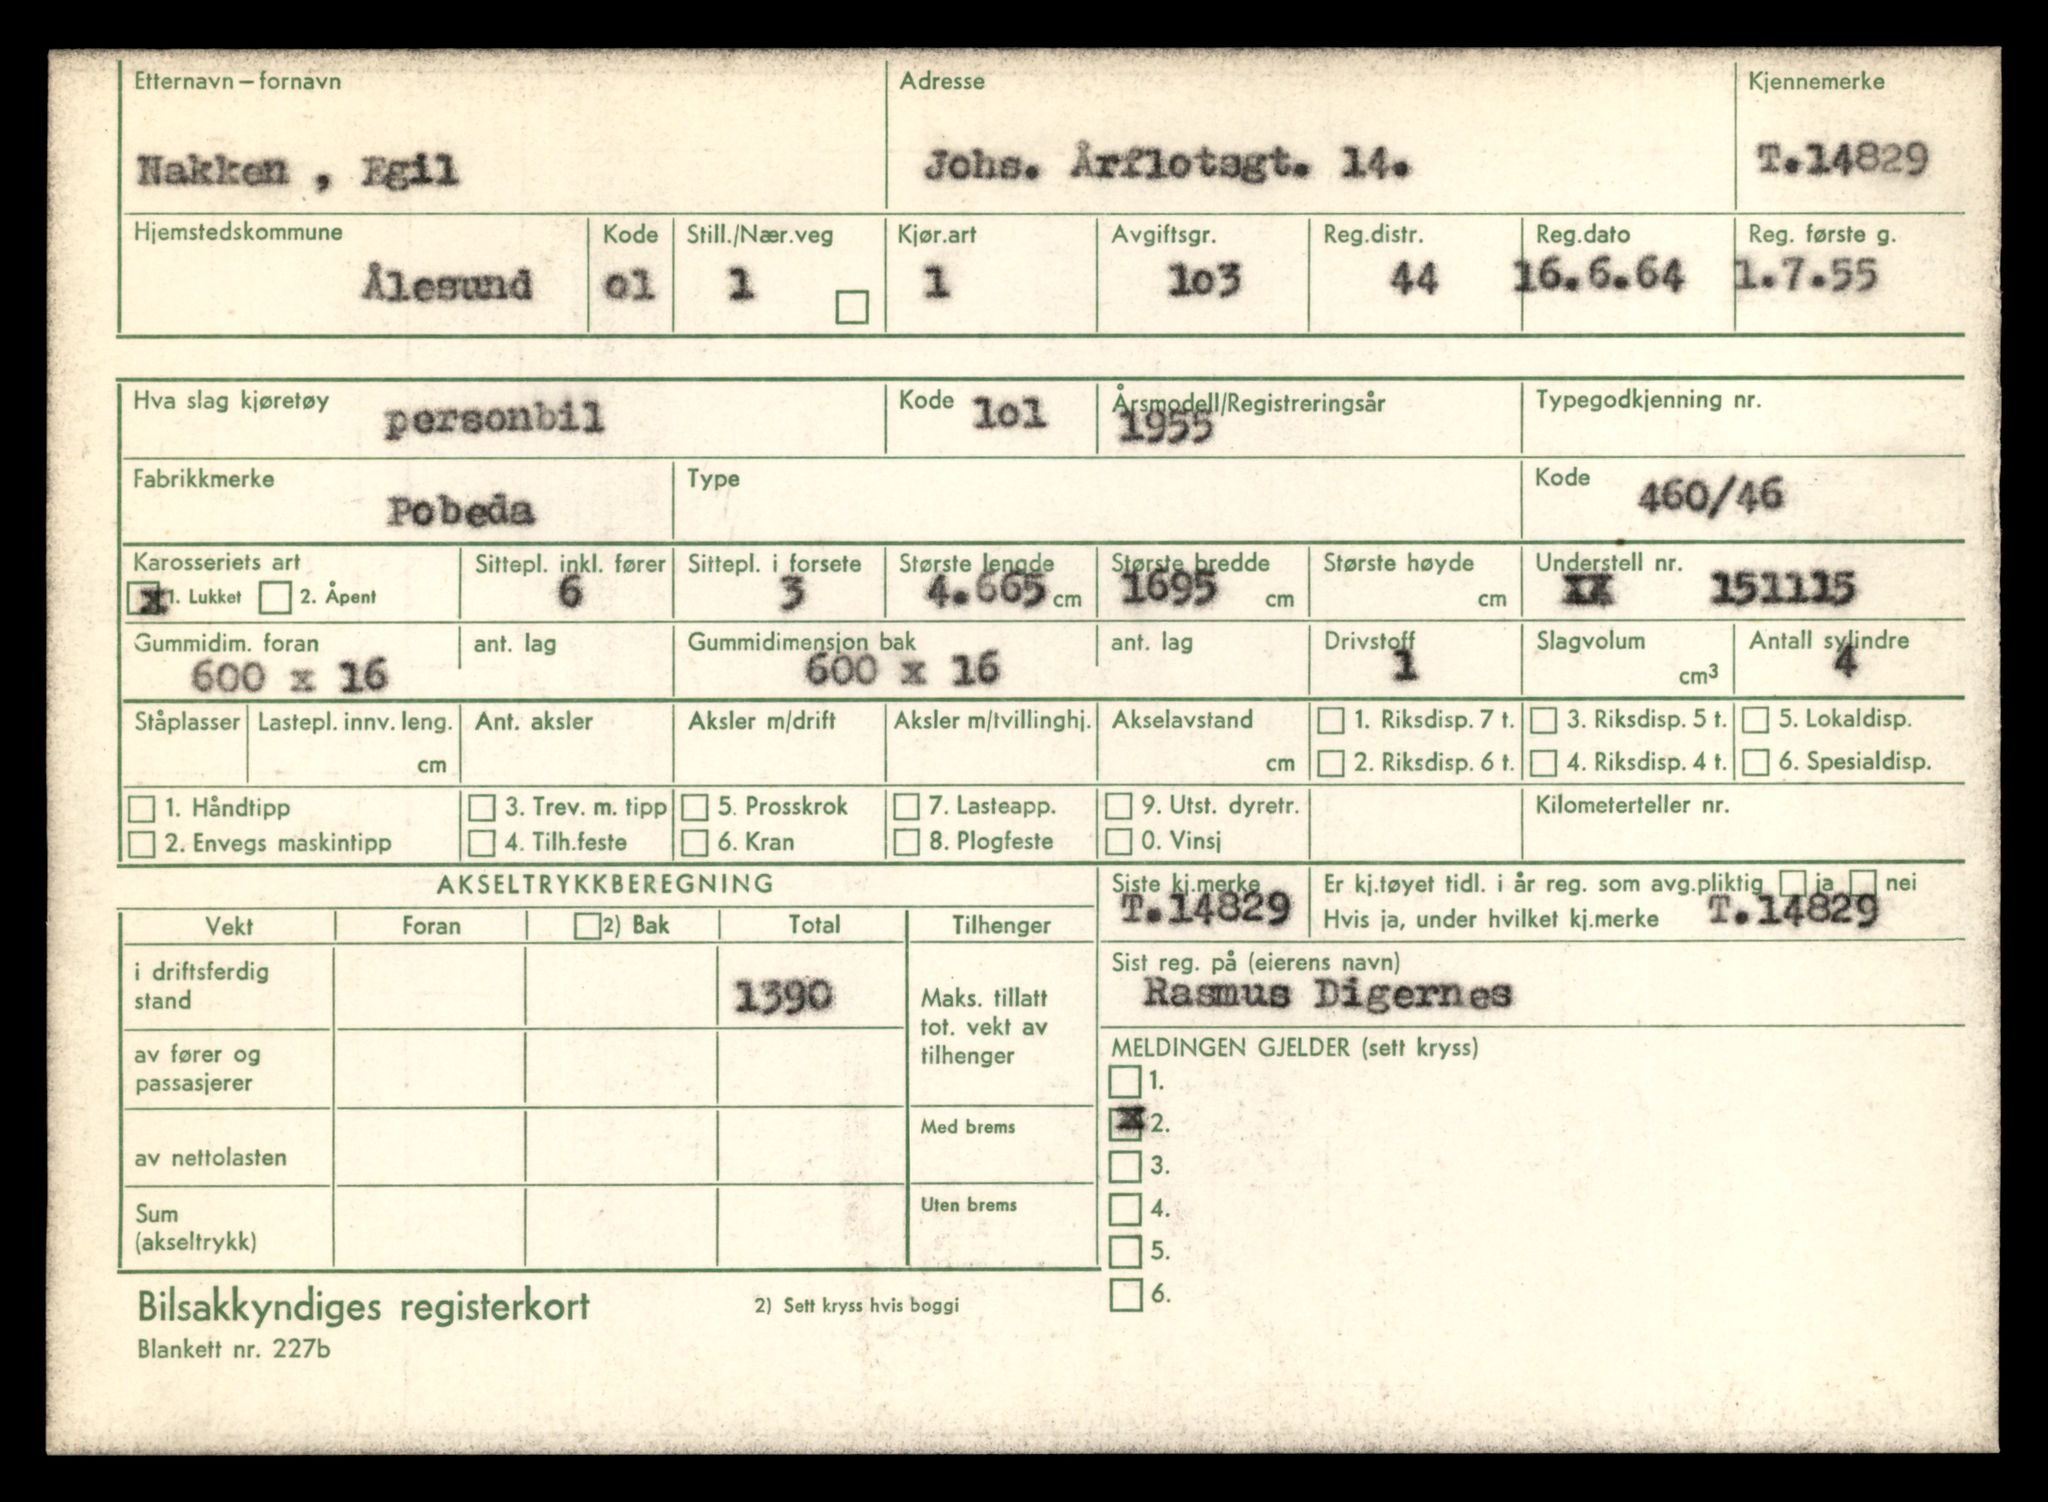 Etternavn – fornavn Adresse Kjennemerke
Nakken , Egil Johs. Årflotsgt. 14. T.14829
Hjemstedskommune Kode Still./Nær.veg Kjør.art Avgiftsgr. Reg.distr. Reg.dato Reg. første g.
Ålesund o1 1 1 1o3 44 16.6.64 1.7.55
Hva slag kjøretøy personbil Kode 1o1 Årsmodell/Registreringsår Typegodkjenning nr.
1955
Fabrikkmerke Type Kode
Pobeda 460/46
Karosseriets art Sittepl. inkl. fører Sittepl. i forsete Største lengde Største bredde Største høyde Understell nr.
x 1. Lukket 2. Åpent 6 3 4.665 cm 1695 cm cm 151115
Gummidim. foran ant. lag Gummidimensjon bak ant. lag Drivstoff Slagvolum Antall sylindre
600 x 16 600 x 16 1 cm3 4
Ståplasser Lastepl. innv. leng. Ant. aksler Aksler m/drift Aksler m/tvillinghj. Akselavstand 1. Riksdisp. 7 t. 3. Riksdisp. 5 t. 5. Lokaldisp.
cm cm 2. Riksdisp. 6 t. 4. Riksdisp. 4 t. 6. Spesialdisp.
1. Håndtipp 3. Trev. m. tipp 5. Prosskrok 7. Lasteapp. 9. Utst. dyretr. Kilometerteller nr.
2. Envegs maskintipp 4. Tilh.feste 6. Kran 8. Plogfeste 0. Vinsj
AKSELTRYKKBEREGNING Siste kj.merke Er kj.tøyet tidl. i år reg. som avg.pliktig ja nei
T.14829 Hvis ja, under hvilket kj.merke T.14829
Vekt Foran 2) Bak Total Tilhenger
Sist reg. på (eierens navn)
Rasmus Digernes
i driftsferdig
stand 1390
Maks. tillatt
tot. vekt av
tilhenger
av fører og
passasjerer
MELDINGEN GJELDER (sett kryss)
1.
x 2.
av nettolasten Med brems
3.
4.
Sum
(akseltrykk) Uten brems
5.
6.
Bilsakkyndiges registerkort 2) Sett kryss hvis boggi
Blankett nr. 227b